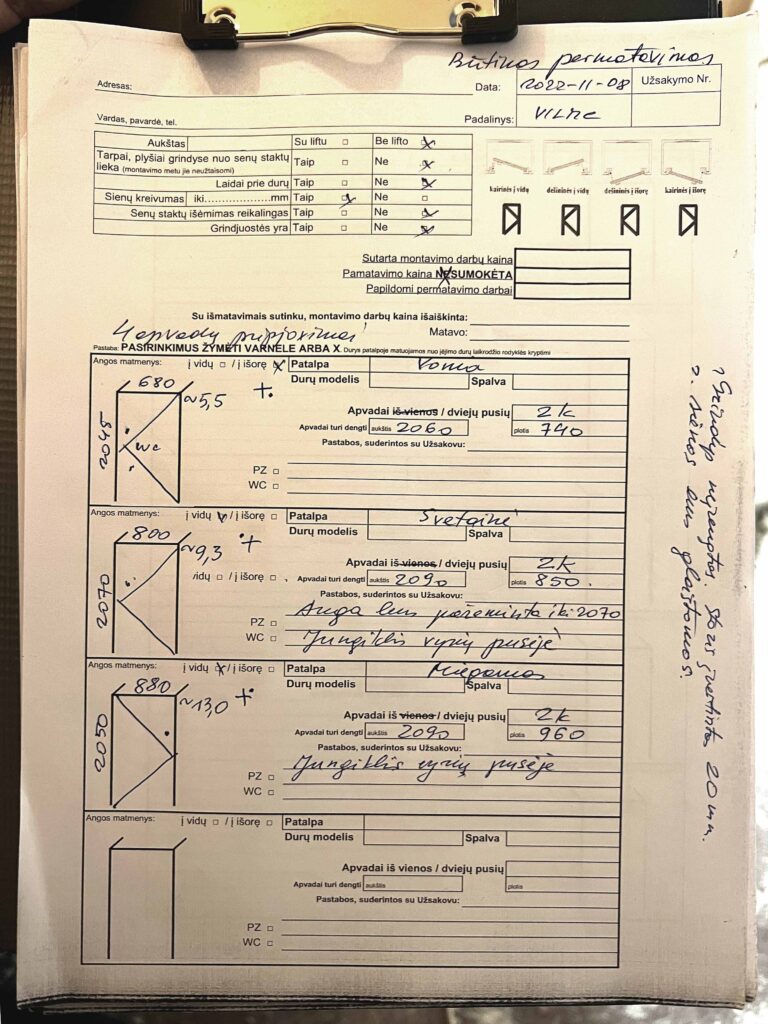 Būtinas permatavimas
Adresas:
Data: 2022-11-08 Užsakymo Nr.
Vardas, pavardė, tel.
Padalinys:
Aukštas Su liftu Be lifto
Tarpai, plyšiai grindyse nuo senų staktų lieka (montavimo metu jie neužtaisomi) Taip Ne
Laidai prie durų Taip Ne
Sienų kreivumas iki..................mm Taip Ne
Senų staktų išėmimas reikalingas Taip Ne
Grindjuostės yra Taip Ne
kairinės į vidų dešininės į vidų dešininės į išorę kairinės į išorę
Sutarta montavimo darbų kaina
Pamatavimo kaina NESUMOKĖTA
Papildomi permatavimo darbai
Su išmatavimais sutinku, montavimo darbų kaina išaiškinta:
Matavo:
apvadų pripjovimai
Pastaba: PASIRINKIMUS ŽYMĖTI VARNELE ARBA X Durys patalpoje matuojamos nuo įėjimo durų laikrodžio rodyklės kryptimi
Angos matmenys: į vidų / į išorę X Patalpa Vonia
Durų modelis Spalva
680 ~5,5 +
2045
WC
Apvadai iš vienos / dviejų pusių 2k
Apvadai turi dengti aukštis 2060 plotis 740
Pastabos, suderintos su Užsakovu:
PZ
WC
Angos matmenys: į vidų / į išorę Patalpa Svetainė
Durų modelis Spalva
800 ~9,3 +
2070
Apvadai iš vienos / dviejų pusių 2k
į vidų / į išorę Apvadai turi dengti aukštis 2090 plotis 850
Pastabos, suderintos su Užsakovu:
Anga bus pažeminta iki 2070
PZ
WC Jungiklis vyrių pusėje
Angos matmenys: į vidų X / į išorę Patalpa Miegamas
Durų modelis Spalva
880 ~13,0 +
2050
Apvadai iš vienos / dviejų pusių 2k
Apvadai turi dengti aukštis 2090 plotis 960
Pastabos, suderintos su Užsakovu:
Jungiklis vyrių pusėje
PZ
WC
Angos matmenys: į vidų / į išorę Patalpa
Durų modelis Spalva
Apvadai iš vienos / dviejų pusių
Apvadai turi dengti aukštis plotis
Pastabos, suderintos su Užsakovu:
PZ
WC
Grindys neįrengtos. storis įvertintas 20mm.
2. sienos bus glaistomos.